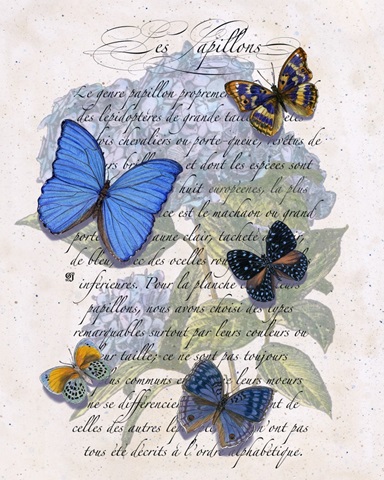 Les Papillons
Le genre papillon propreme
des lépidoptères de grande tail
ois chevaliers ou porte-queue, revêtus de
et dont les espèces sont
huit européenes, la plus
nce est le machaon ou grand
porte aune clair, tacheté
de bleu, ec des ocelles rou
inférieures. Pour la planche
papillons, nous avons choisi des types
remarquables surtout par leurs couleurs ou
ur taillez ce ne sont pas toujours
us communs e leurs moeurs
ne se différencien nt de
celles des autres lép n'ont pas
tous été décrits à l'ordre alphabétique.